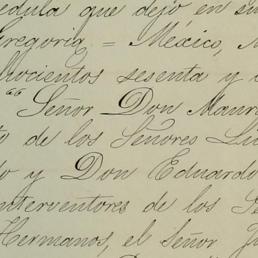 cedula que dejo en su
Gregoria = México, 
trocientos sesenta y
" Señor Don Maur
to de los Señores Lu
do y Don Eduardo
nterventores de los Se
Hermanos, el Señor Ju